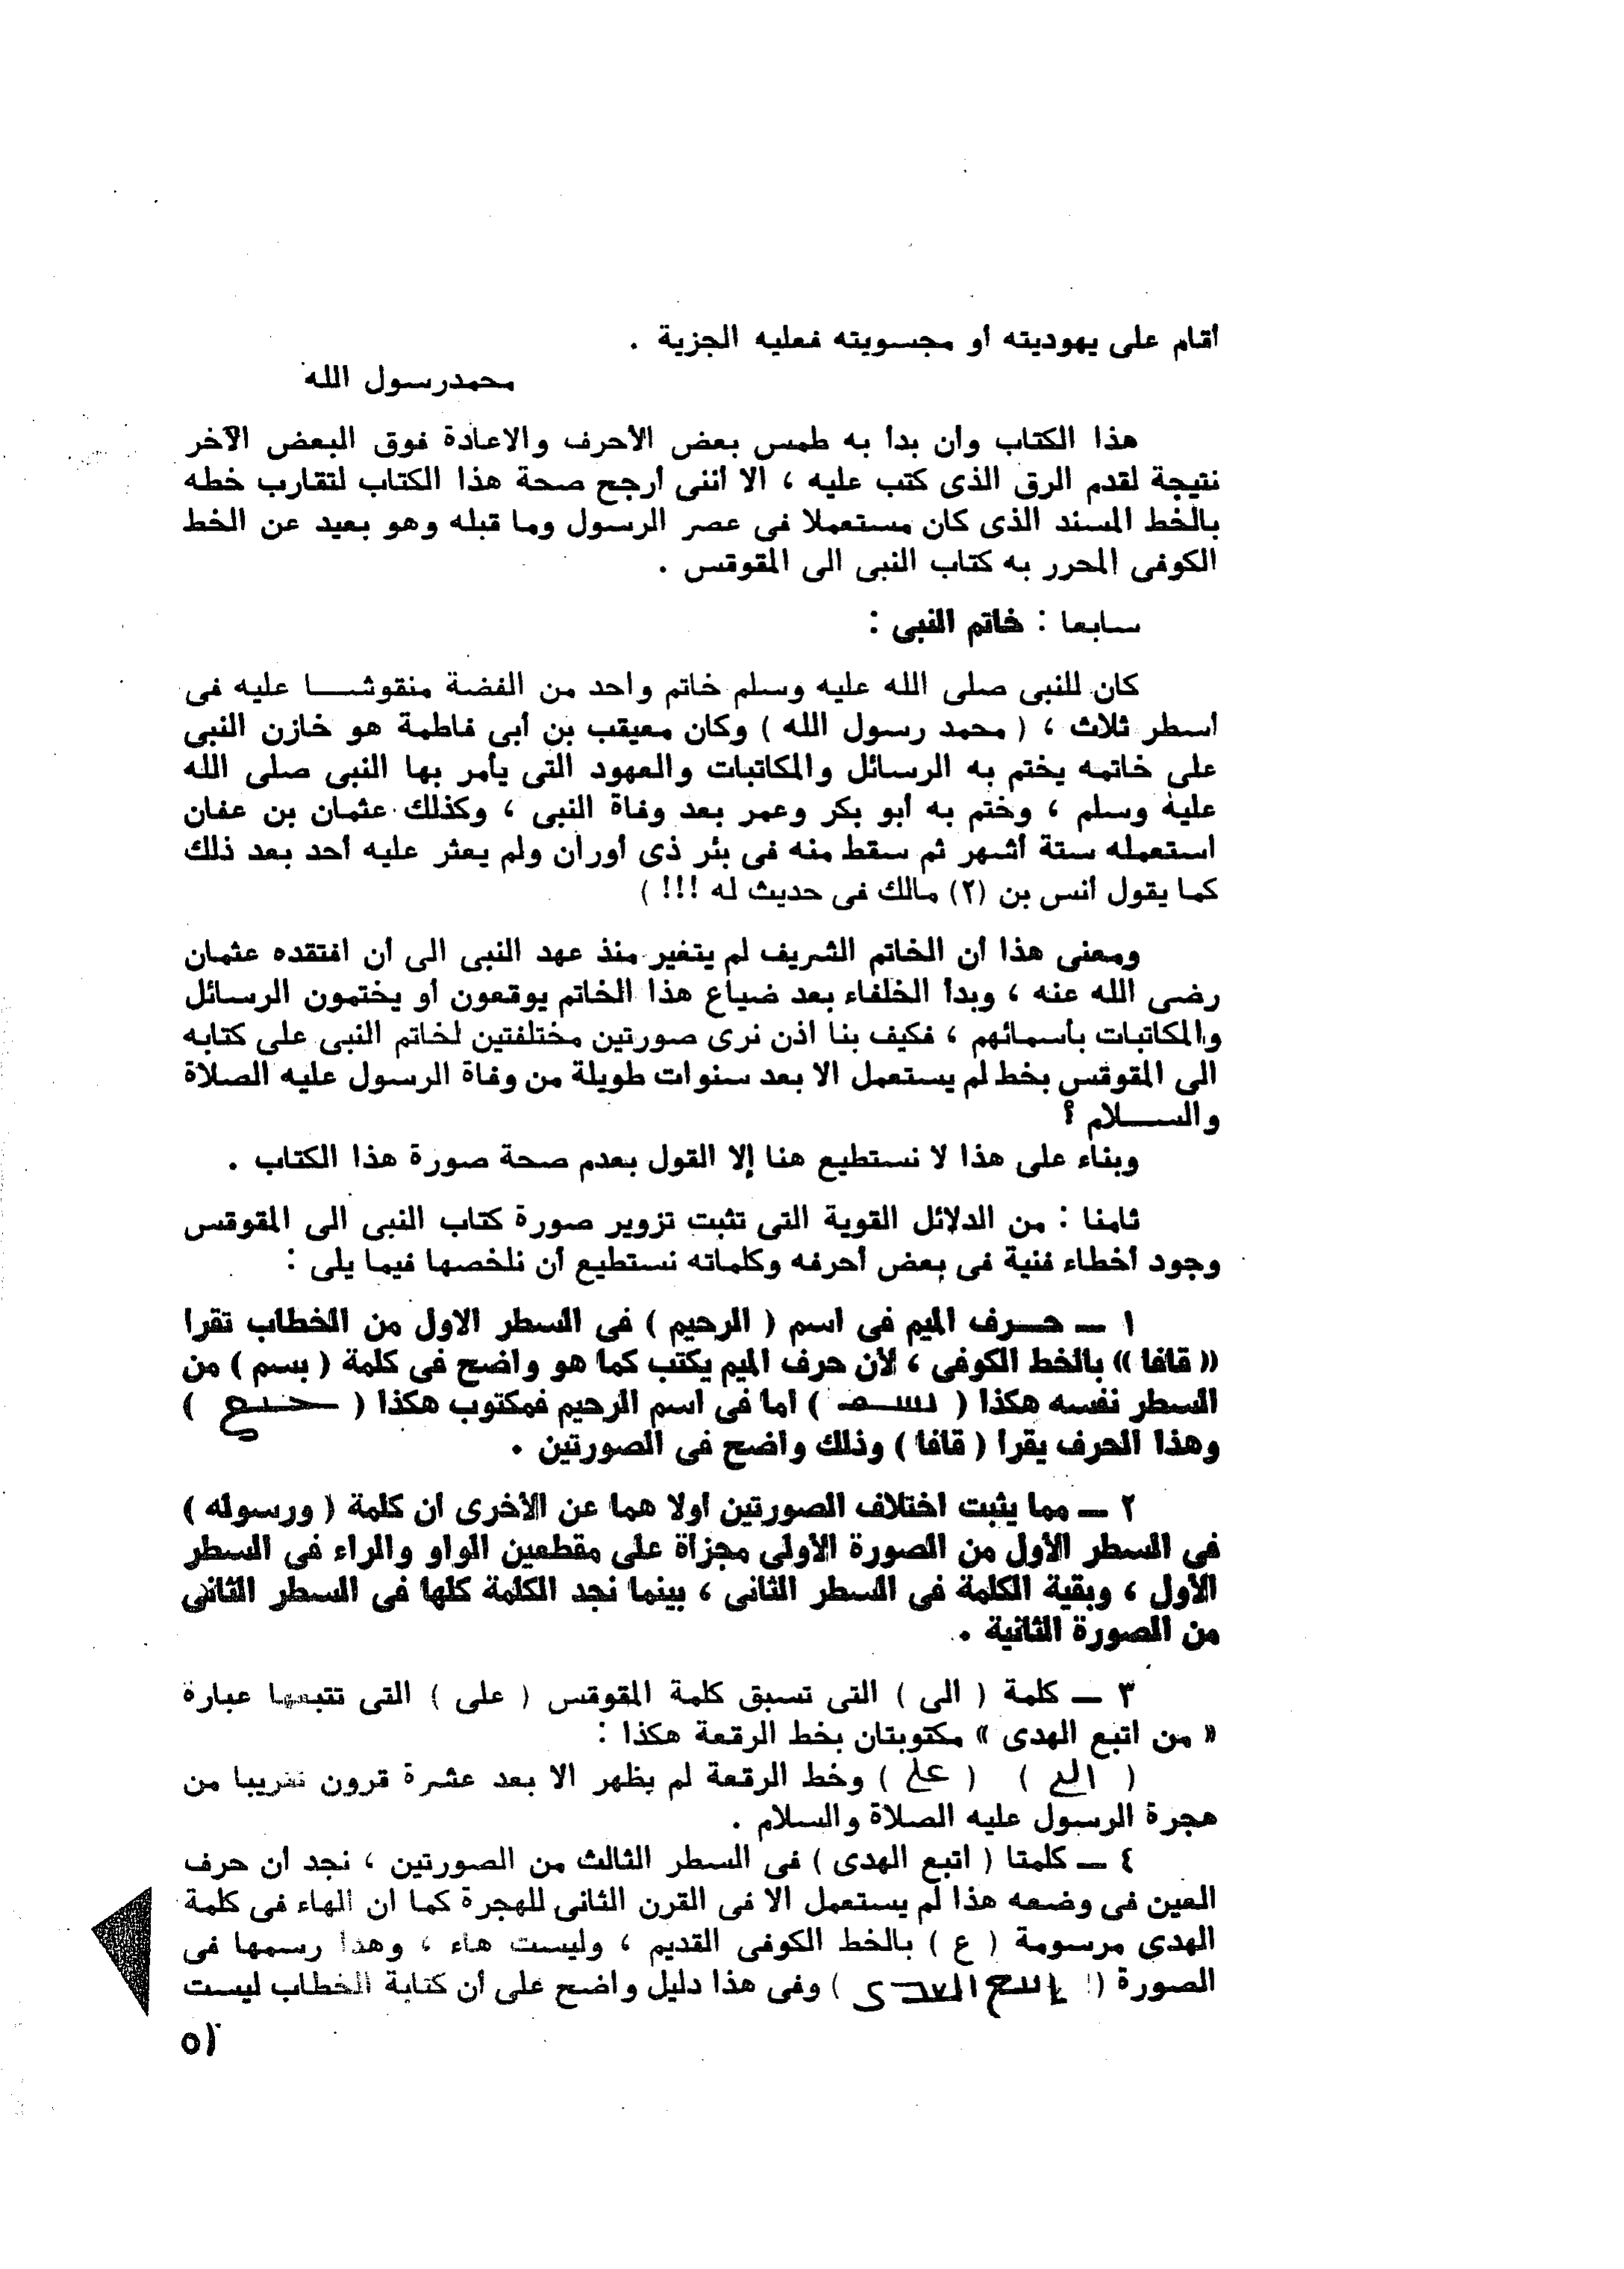 أقام على يهوديته أو مجسويته فعليه الجزية .
محمدرسول الله
هذا الكتاب وأن بدأ به طمس بعض الأحرف والاعادة فوق البعض الآخر
نتيجة لقدم الرق الذى كتب عليه ، الا أننى أرجح صحة هذا الكتاب لتقارب خطه
بالخط المسند الذى كان مستعملا فى عصر الرسول وما قبله وهو بعيد عن الخط
الكوفى المحرر به كتاب النبى الى المقوقس .
سابعا : خاتم النبى :
كان للنبى صلى الله عليه وسلم خاتم واحد من الفضة منقوشا عليه فى
أسطر ثلاث ، ( محمد رسول الله ) وكان معيقب بن أبى فاطمة هو خازن النبى
على خاتمه يختم به الرسائل والمكاتبات والعهود التى يأمر بها النبى صلى الله
عليه وسلم ، وختم به أبو بكر وعمر بعد وفاة النبى ، وكذلك عثمان بن عفان
استعمله ستة أشهر ثم سقط منه فى بئر ذى أوران ولم يعثر عليه أحد بعد ذلك
كما يقول أنس بن (٢) مالك فى حديث له !!! )
ومعنى هذا أن الخاتم الشريف لم يتغير منذ عهد النبى الى أن افتقده عثمان
رضى الله عنه ، وبدأ الخلفاء بعد ضياع هذا الخاتم يوقعون أو يختمون الرسائل
والمكاتبات بأسمائهم ، فكيف بنا اذن نرى صورتين مختلفتين لخاتم النبى على كتابه
الى المقوقس بخط لم يستعمل الا بعد سنوات طويلة من وفاة الرسول عليه الصلاة
والسلام ؟
وبناء على هذا لا نستطيع هنا إلا القول بعدم صحة صورة هذا الكتاب .
ثامنا : من الدلائل القوية التى تثبت تزوير صورة كتاب النبى الى المقوقس
وجود أخطاء فنية فى بعض أحرفه وكلماته نستطيع أن نلخصها فيما يلى :
١ — حرف الميم فى اسم ( الرحيم ) فى السطر الاول من الخطاب تقرا
(( قافا )) بالخط الكوفى ، لأن حرف الميم يكتب كما هو واضح فى كلمة ( بسم ) من
السطر نفسه هكذا ( ) اما فى اسم الرحيم فمكتوب هكذا ( )
وهذا الحرف يقرا ( قافا ) وذلك واضح فى الصورتين .
٢ — مما يثبت اختلاف الصورتين أولا هما عن الأخرى ان كلمة ( ورسوله )
فى السطر الأول من الصورة الأولى مجزأة على مقطعين الواو والراء فى السطر
الأول ، وبقية الكلمة فى السطر الثانى ، بينما نجد الكلمة كلها فى السطر الثانى
من الصورة الثانية .
٣ — كلمة ( الى ) التى تسبق كلمة المقوقس ( على ) التى تتبعها عبارة
« من اتبع الهدى » مكتوبتان بخط الرقعة هكذا :
( الى ) ( على ) وخط الرقعة لم يظهر الا بعد عشرة قرون تقريبا من
هجرة الرسول عليه الصلاة والسلام .
٤ — كلمتا ( اتبع الهدى ) فى السطر الثالث من الصورتين ، نجد أن حرف
العين فى وضعه هذا لم يستعمل الا فى القرن الثانى للهجرة كما أن الهاء فى كلمة
الهدى مرسومة ( ع ) بالخط الكوفى القديم ، وليست هاء ، وهذا رسمها فى
الصورة ( ) وفى هذا دليل واضح على أن كتابة الخطاب ليست
٥١